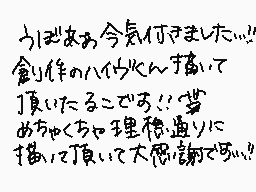 うぼああ今気付きました…!!
創作のハイヴくん描いて
頂いたるこです!!
めちゃくちゃ理想通りに
描いて頂いて大感謝です…!!